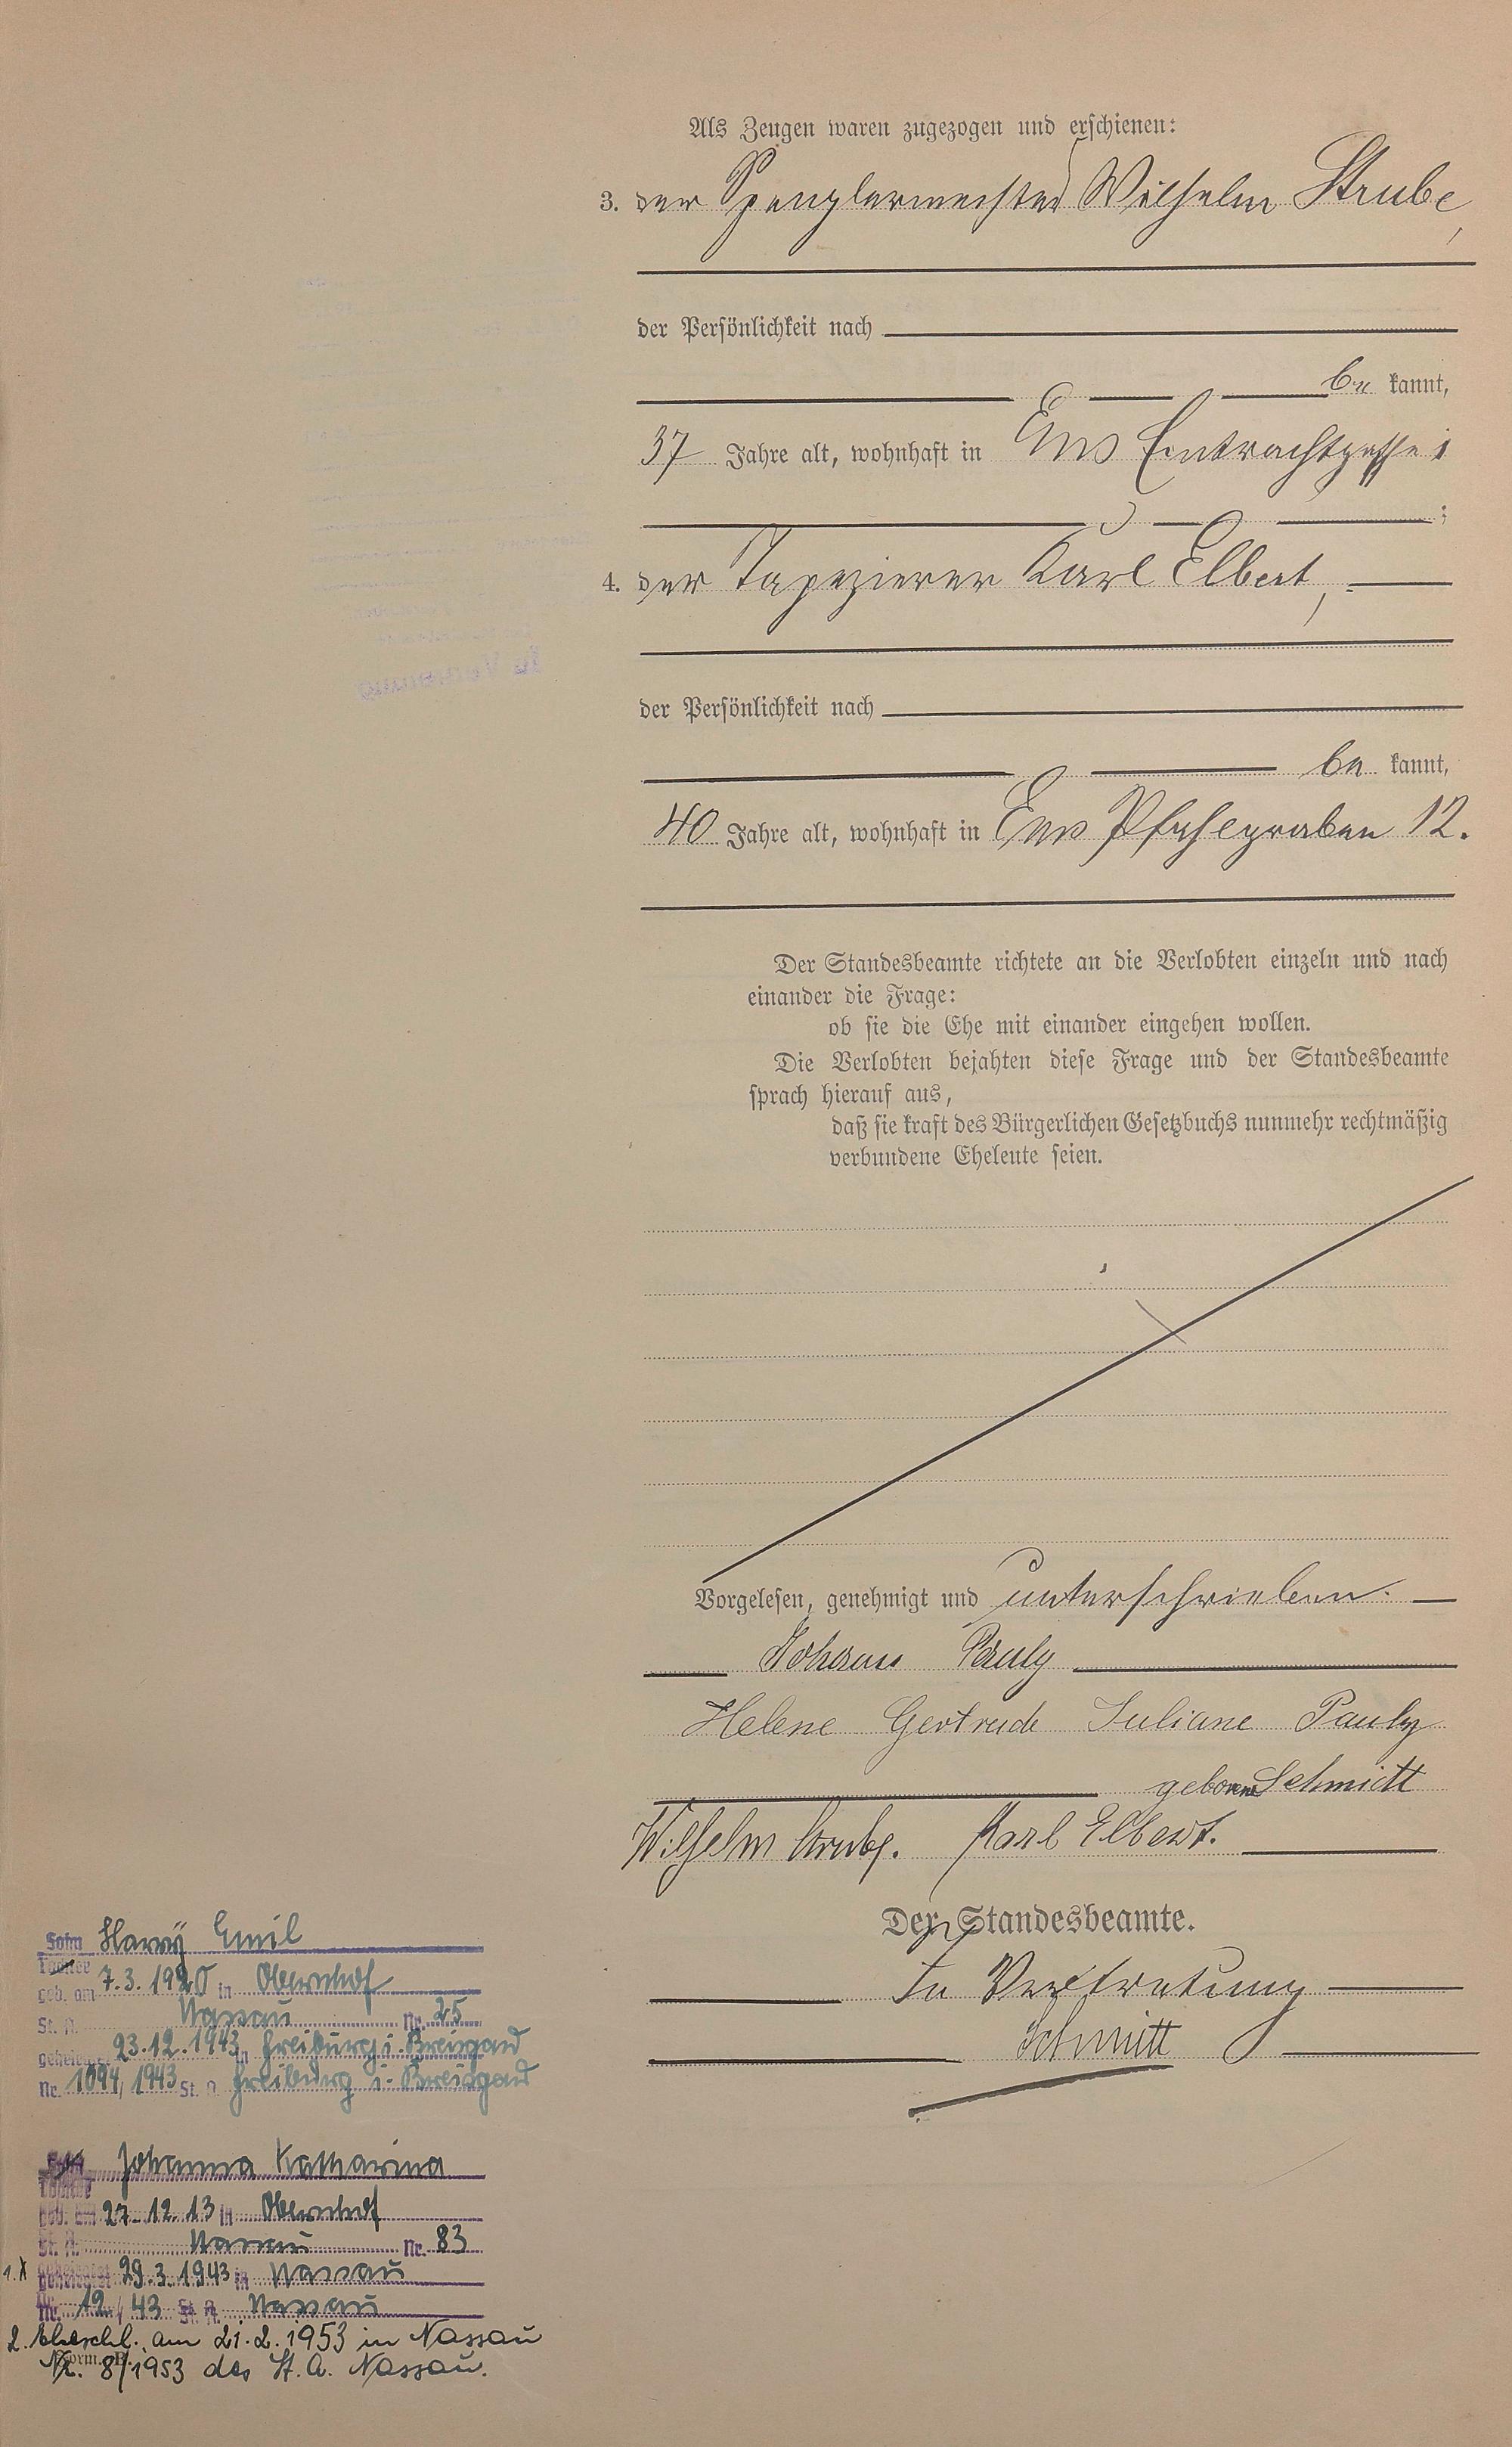 Als Zeugen waren zugezogen und erschienen:
3. der Spenglermeister Wilhelm Strube,
der Persönlichkeit nach
be kannt,
37 Jahre alt, wohnhaft in Ems Eintrachtgasse 1
;
4. der Tapezierer Karl Elbert,
der Persönlichkeit nach
be kannt,
40 Jahre alt, wohnhaft in Ems Pfahlgraben 12.
Der Standesbeamte richtete an die Verlobten einzeln und nach
einander die Frage:
ob sie die Ehe mit einander eingehen wollen.
Die Verlobten bejahten diese Frage und der Standesbeamte
sprach hierauf aus,
daß sie kraft des Bürgerlichen Gesetzbuchs nunmehr rechtmäßig
verbundene Eheleute seien.
Vorgelesen, genehmigt und unterschrieben.
Johann Pauly
Helene Gertrude Juliane Pauly
geborene Schmidt
Wilhelm Strube. Karl Elbert.
Der Standesbeamte.
In Vertretung
Schmitt
Sohn Harry Emil
Tochter
geb. am 7.3.1920 in Obernhof
St. A. Nassau Nr. 25
geheiratet 23.12.1943 in Freiburg i. Breisgau
Nr. 1094/1943 St. A. Freiburg i. Breisgau
Sohn Johanna Katharina
Tochter
geb. am 27.12.13 in Obernhof
St. A. Nassau Nr. 83
1. X geheiratet 29.3.1943 in Nassau
Nr. 12/43 St. A. Nassau
2. Eheschl. am 21.2.1953 in Nassau
Nr. 8/1953 des St. A. Nassau.